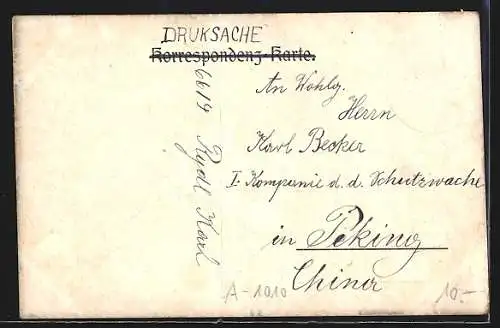 DRUKSACHE
Korrespondenz-Karte.
An Wohlg.
Herrn
Karl Becker
I. Kompanie d. d. Schutzwache
in Peking
China
6619 Rydl Karl
A-1010
10.-